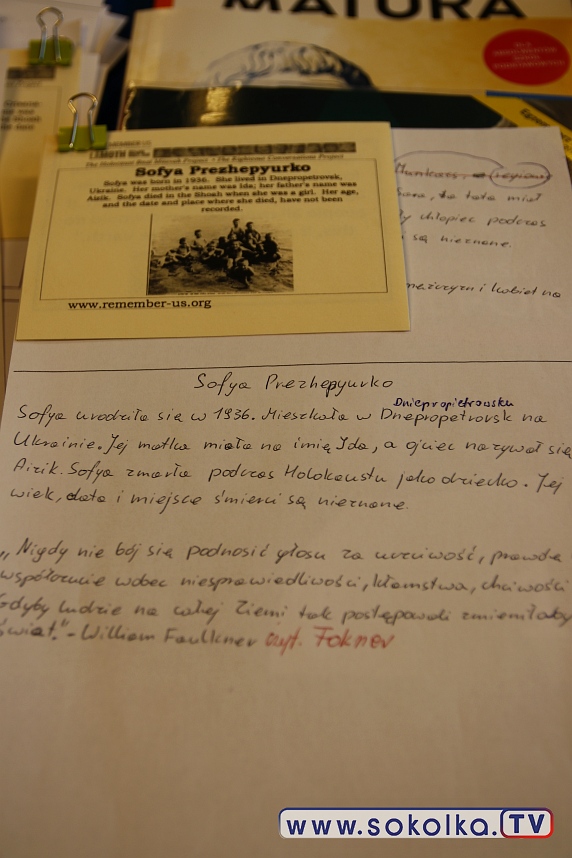 MATURA
REMEMBER US
The Holocaust Bnai Mitzvah Project • The Righteous Conversations Project
Sofya Prezhepyurko
Sofya was born in 1936. She lived in Dnepropetrovsk,
Ukraine. Her mother's name was Ida; her father's name was
Aizik. Sofya died in the Shoah when she was a girl. Her age,
and the date and place where she died, have not been
recorded.
www.remember-us.org
Sara, a tata miał
chłopiec podczas
są nieznane.
mężczyzn i kobiet na
Sofya Prezhepyurko
Dniepropietrowsku
Sofya urodziła się w 1936. Mieszkała w Dnepropetrovsk na
Ukrainie. Jej matka miała na imię Ida, a ojciec nazywał się
Aizik. Sofya zmarła podczas Holokaustu jako dziecko. Jej
wiek, data i miejsce śmierci są nieznane.
„Nigdy nie bój się podnosić głosu za uczciwość, prawdę
współczucie wobec niesprawiedliwości, kłamstwa, chciwości
Gdyby ludzie na całej Ziemi tak postępowali zmieniłaby
świat." - William Faulkner czyt. Fokner
www.sokolka.TV